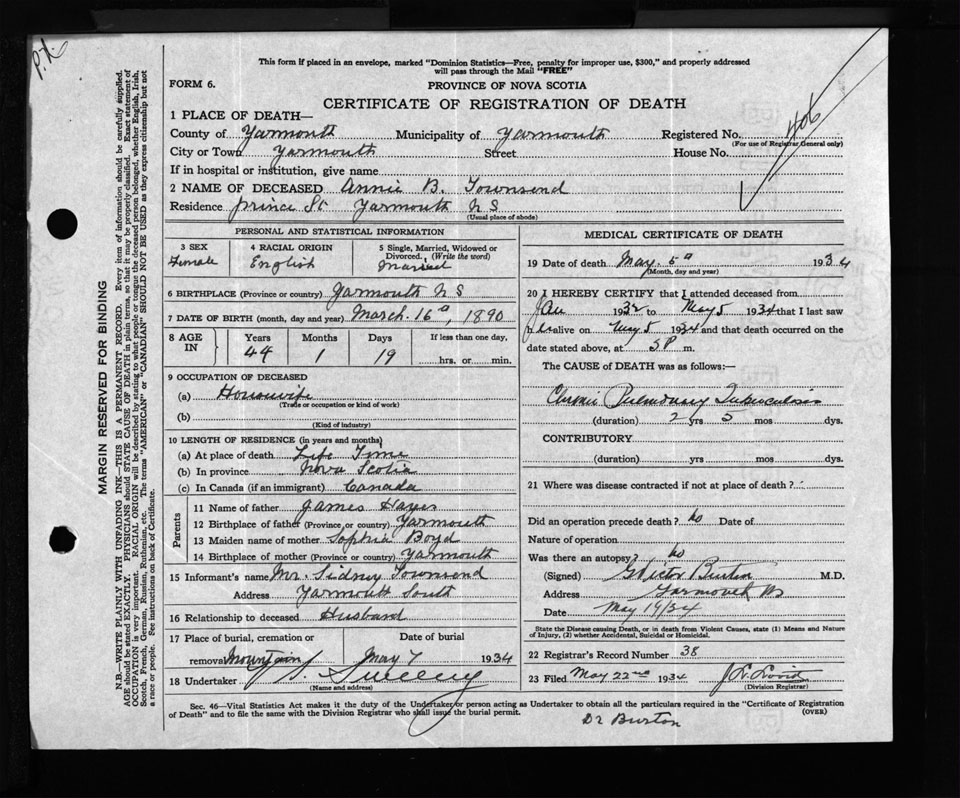 P.X.
This form if placed in an envelope, marked "Dominion Statistics—Free, penalty for improper use, $300," and properly addressed
will pass through the Mail "FREE"
FORM 6.
PROVINCE OF NOVA SCOTIA
CERTIFICATE OF REGISTRATION OF DEATH
406
1 PLACE OF DEATH—
County of Yarmouth Municipality of Yarmouth Registered No.
(For use of Registrar General only)
City or Town Yarmouth Street House No.
If in hospital or institution, give name
2 NAME OF DECEASED Annie B. Townsend
Residence Prince St. Yarmouth N S
(Usual place of abode)
PERSONAL AND STATISTICAL INFORMATION
3 SEX 4 RACIAL ORIGIN 5 Single, Married, Widowed or
Divorced. (Write the word)
Female English Married
6 BIRTHPLACE (Province or country) Yarmouth N S
7 DATE OF BIRTH (month, day and year) March. 16, 1890
8 AGE IN Years Months Days If less than one day,
44 1 19 hrs. or min.
9 OCCUPATION OF DECEASED
(a) Housewife
(Trade or occupation or kind of work)
(b)
(Kind of industry)
10 LENGTH OF RESIDENCE (in years and months)
(a) At place of death Life Time
(b) In province Nova Scotia
(c) In Canada (if an immigrant) Canada
Parents
11 Name of father James Hayes
12 Birthplace of father (Province or country) Yarmouth
13 Maiden name of mother Sophia Boyd
14 Birthplace of mother (Province or country) Yarmouth
15 Informant's name Mr. Sidney Townsend
Address Yarmouth South
16 Relationship to deceased Husband
17 Place of burial, cremation or Date of burial
removal Mountain May 7 1934
18 Undertaker Sweeny
(Name and address)
MEDICAL CERTIFICATE OF DEATH
19 Date of death May. 5 1934
(Month, day and year)
20 I HEREBY CERTIFY that I attended deceased from
Jan 1932 to May 5 1934 that I last saw
her alive on May 5 1934 and that death occurred on the
date stated above, at 5P m.
The CAUSE of DEATH was as follows:—
Chronic Pulmonary Tuberculosis
(duration) 2 yrs 5 mos dys.
CONTRIBUTORY
(duration) yrs mos dys.
21 Where was disease contracted if not at place of death?
Did an operation precede death? No Date of
Nature of operation
Was there an autopsy? No
(Signed) G Victor Burton M.D.
Address Yarmouth NS
Date May 19/34
State the Disease causing Death, or in death from Violent Causes, state (1) Means and Nature
of Injury, (2) whether Accidental, Suicidal or Homicidal.
22 Registrar's Record Number 38
23 Filed May 22nd 1934
(Division Registrar)
Sec. 46—Vital Statistics Act makes it the duty of the Undertaker or person acting as Undertaker to obtain all the particulars required in the "Certificate of Registration
of Death" and to file the same with the Division Registrar who shall issue the burial permit. (OVER)
Dr Burton
MARGIN RESERVED FOR BINDING
N.B.—WRITE PLAINLY WITH UNFADING INK—THIS IS A PERMANENT RECORD. Every item of information should be carefully supplied.
AGE should be stated EXACTLY. PHYSICIANS should STATE CAUSE OF DEATH in plain terms, so that it may be properly classified. Exact statement of
OCCUPATION is very important. RACIAL ORIGIN will be described by stating to what people or tongue the deceased person belonged, whether English, Irish,
Scotch, French, German, Russian, Ruthenian, etc. The terms "AMERICAN" or "CANADIAN" SHOULD NOT BE USED as they express citizenship but not
a race or people. See instructions on back of Certificate.